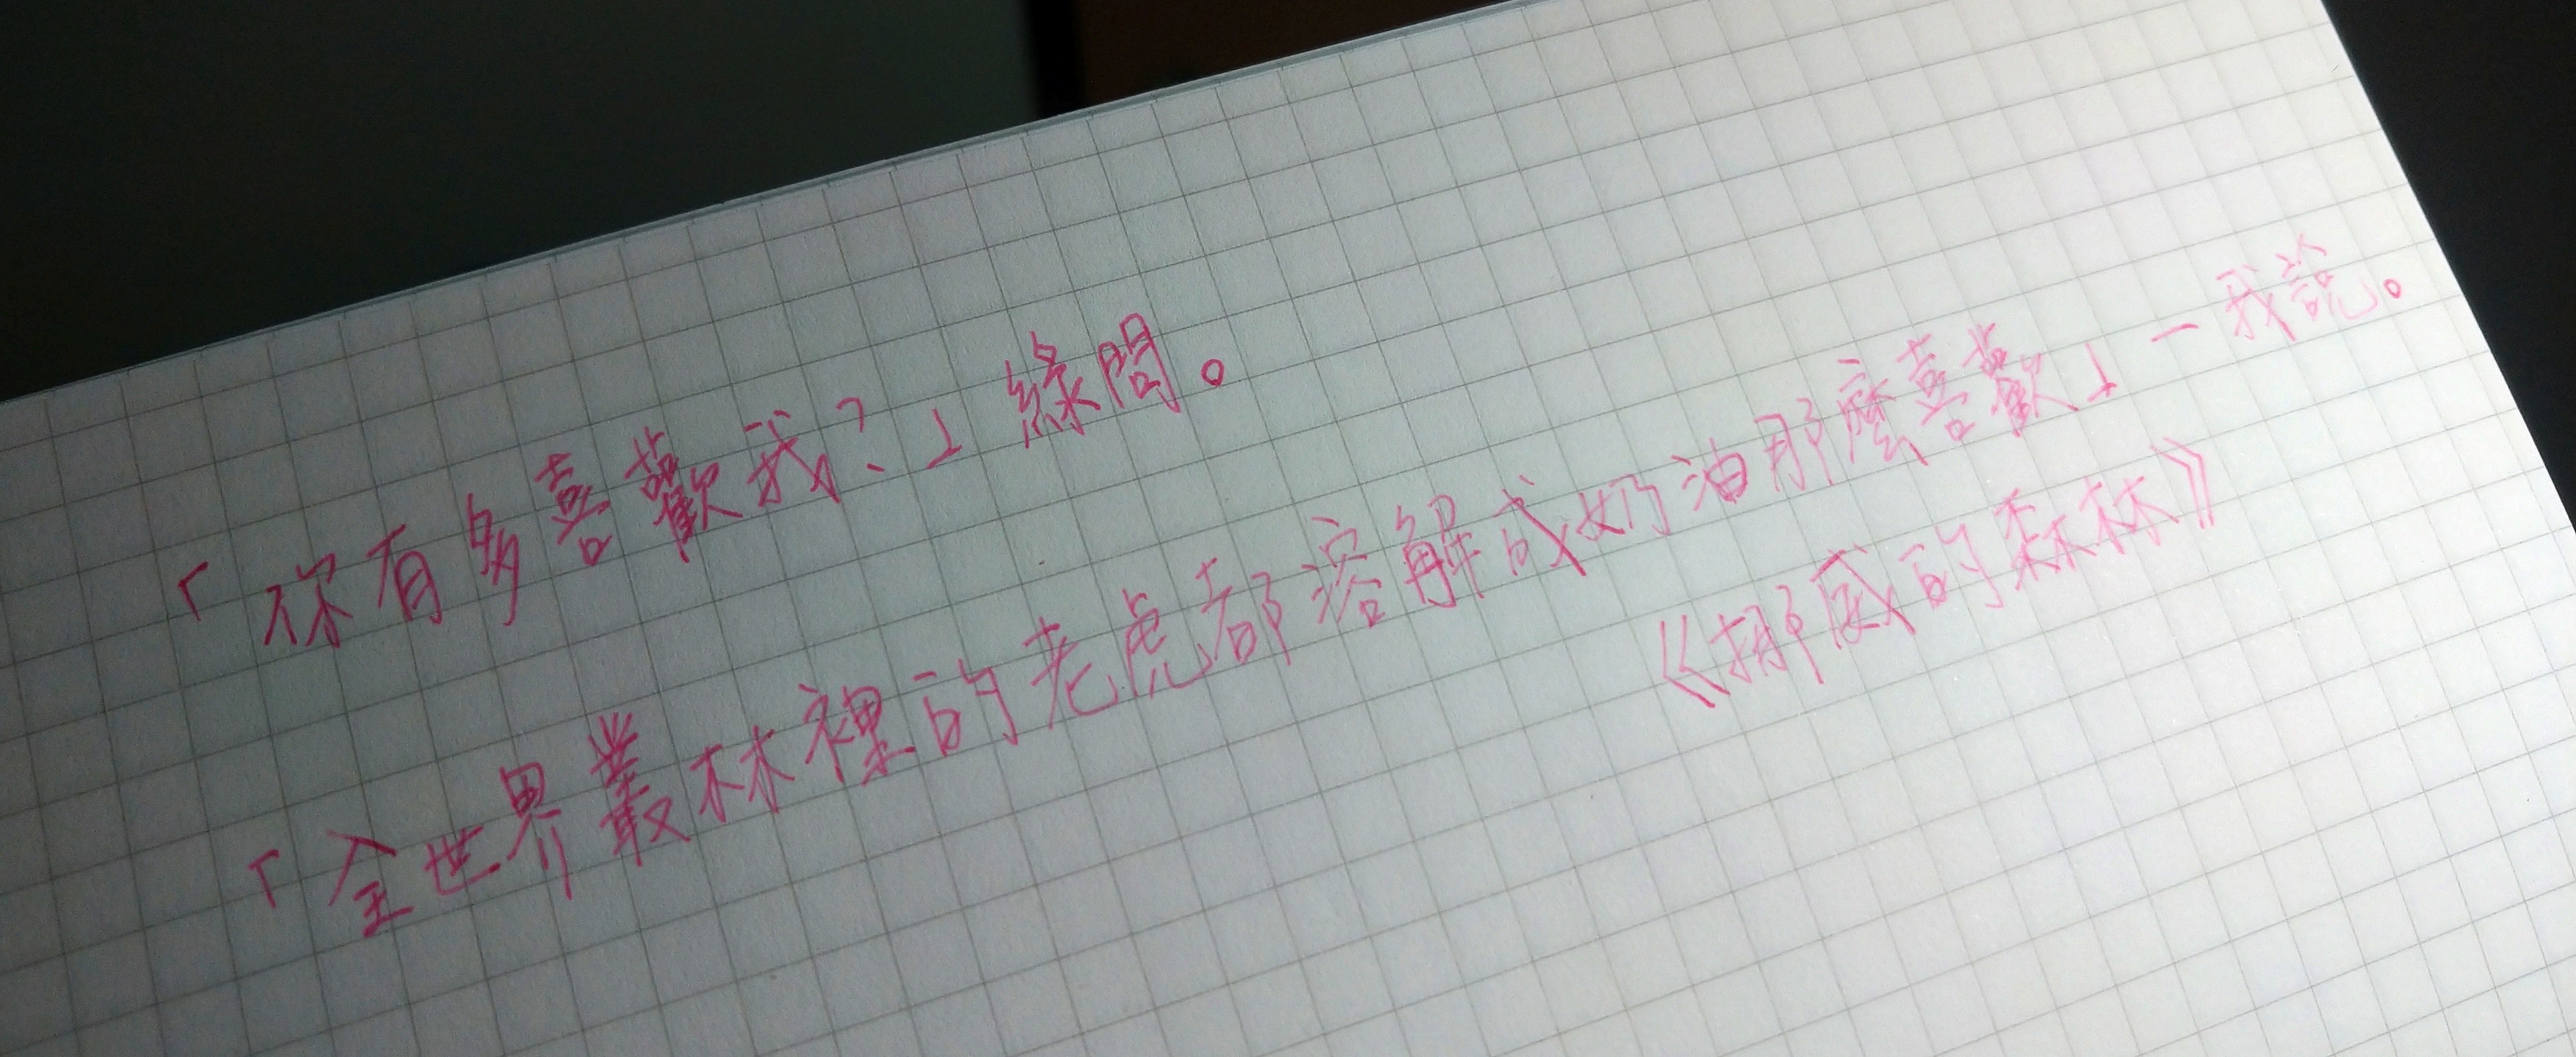 「你有多喜歡我?」綠問。
「全世界叢林裡的老虎都溶解成奶油那麼喜歡」－我說。
《挪威的森林》